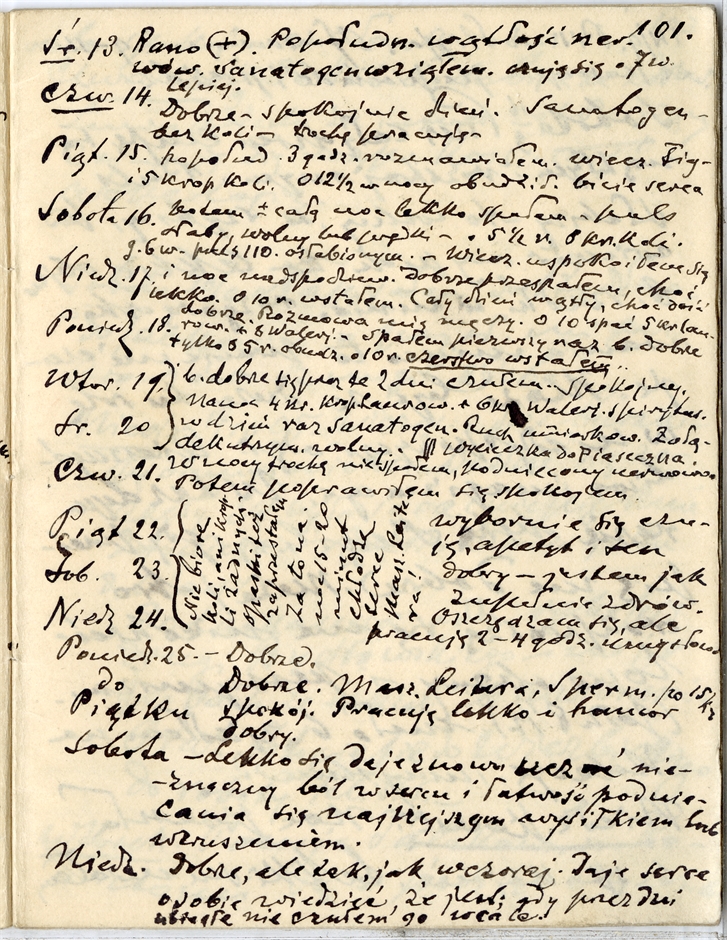 101.
Śr. 13. Rano (+). Popołudn. wątłość ner-
wów. Sanatogen wziąłem. czuję się o 7 w.
lepiej.
Czw. 14. Dobrze – spokojnie dzień. Sanatogen –
bez Koli – trochę pracuję –
Piąt. 15. popołud. 3 godz. rozmawiałem. wiecz.
i 5 krop Koli. O 12 1/2 w nocy obudził. bicie serca
Sobota 16. potem ± całą noc lekko spałem – puls
słaby, wolny lub prędki – o 5 1/2 r. 8 kr. Koli.
g. 6 w. puls 110. osłabionym. – Wiecz. uspokoiłem się
Niedz. 17. i noc nadspodziew. dobrze przespałem, choć
lekko. O 10 r. wstałem. Cały dzień wątły, choć dość
dobrze. Rozmowa mię męczy. O 10 spać 5 kr lau-
Poniedz. 18. row. + 8 Waleri. – Spałem pierwszy raz b. dobrze
tylko o 5 r. obudz. o 10 r. czerstwo wstałem.
Wtor. 19. b. dobrze się przez te 2 dni czułem. Spokojny.
Na noc 4 kr. krop Laurow. + 6 kr. Waleri. spirytus.
Śr. 20 w dzień raz sanatogen. Ruch umiarkow. Żołą-
dek utrzym. wolny. Wycieczka do Piaseczna.
Czw. 21. W nocy trochę nie spałem, podniecony nerwowo
Potem poprawiłem się spokojem.
Piąt 22.
Sob. 23.
Niedz 24.
Nie biorę
koli, ani krop-
li żadnych.
opaski też
zaprzestałem
Za to na
noc 15-20
minut
chłodzę
serce
masz. Leite-
ra!
wybornie się czu-
ję, apetyt i sen
dobry – jestem jak
zupełnie zdrów.
Oszczędzam się, ale
pracuję 2–4 godz. umysłowo
Poniedz. 25. – Dobrze.
do
Piątku Dobrze. Masz. Leitera, Sperm. po 15 kr
spokój. Pracuję lekko i humor
dobry.
Sobota – Lekko się daje znowu uczuć nie-
znaczny ból w sercu i łatwość podnie-
cania się najlżejszym wysiłkiem lub
wzruszeniem.
Niedz. Dobrze, ale tak, jak wczoraj. Daje serce
o sobie wiedzieć, że jest; gdy przez dni
ubiegłe nie czułem go wcale!